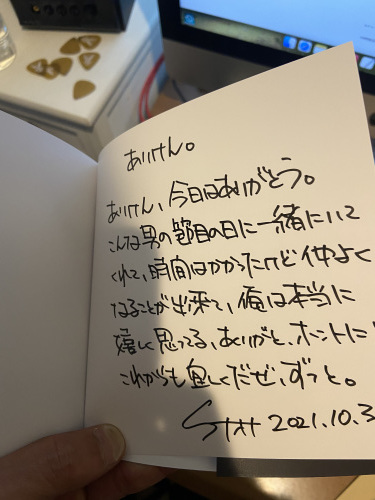 ありけん。
ありけん、今日はありがとう。
こんな男の節目の日に一緒にいて
くれて、時間はかかったけど仲よく
なることが出来て、俺は本当に
嬉しく思ってる、ありがと、ホントに!
これからも宜しくだぜ、ずっと。
2021.10.3